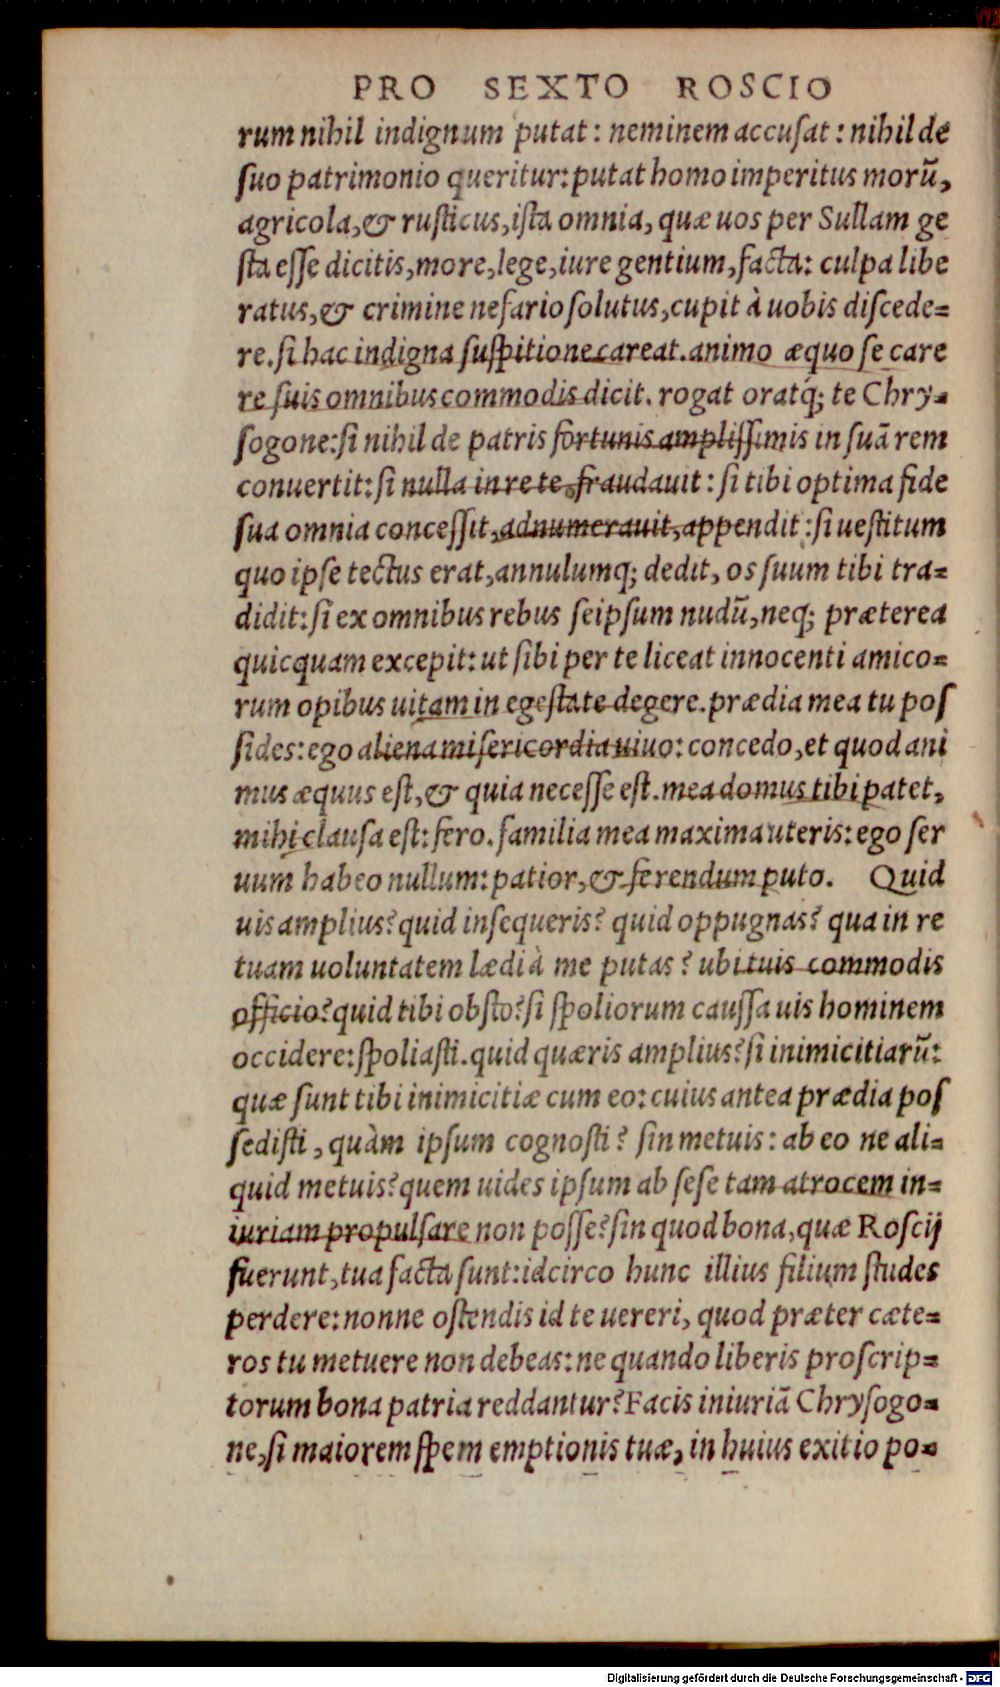 PRO SEXTO ROSCIO
rum nihil indignum putat: neminem accusat: nihil de
suo patrimonio queritur: putat homo imperitus morū,
agricola, & rusticus, ista omnia, quæ uos per Sullam ge
sta esse dicitis, more, lege, iure gentium, facta: culpa libe
ratus, & crimine nefario solutus, cupit à uobis discede=
re. si hac indigna suspitione careat. animo æquo se care
re suis omnibus commodis dicit. rogat oratq́; te Chry=
sogone: si nihil de patris fortunis amplissimis in suā rem
conuertit: si nulla in re te fraudauit: si tibi optima fide
sua omnia concessit, adnumerauit, appendit: si uestitum
quo ipse tectus erat, annulumq; dedit, os suum tibi tra=
didit: si ex omnibus rebus seipsum nudū, neq; præterea
quicquam excepit: ut sibi per te liceat innocenti amico=
rum opibus uitam in egestate degere. prædia mea tu pos
sides: ego aliena misericordia uiuo: concedo, et quod ani
mus æquus est, & quia necesse est. mea domus tibi patet,
mihi clausa est: fero. familia mea maxima uteris: ego ser
uum habeo nullum: patior, & ferendum puto. Quid
uis amplius? quid insequeris? quid oppugnas? qua in re
tuam uoluntatem lædi à me putas? ubi tuis commodis
officio? quid tibi obsto? si spoliorum caussa uis hominem
occidere: spoliasti. quid quæris amplius? si inimicitiarū:
quæ sunt tibi inimicitiæ cum eo: cuius antea prædia pos
sedisti, quàm ipsum cognosti? sin metuis: ab eo ne ali=
quid metuis? quem uides ipsum ab sese tam atrocem in=
iuriam propulsare non posse? sin quod bona, quæ Roscij
fuerunt, tua facta sunt: idcirco hunc illius filium studes
perdere: nonne ostendis id te uereri, quod præter cæte=
ros tu metuere non debeas: ne quando liberis proscrip=
torum bona patria reddantur? Facis iniuriā Chrysogo=
ne, si maiorem spem emptionis tuæ, in huius exitio po=
Digitalisierung gefördert durch die Deutsche Forschungsgemeinschaft - DFG